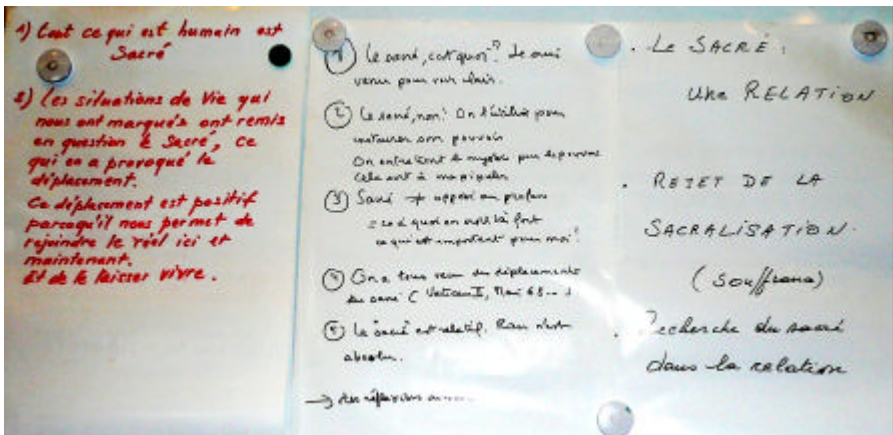 1) Tout ce qui est humain est
Sacré
2) Les situations de Vie qui
nous ont marqués ont remis
en question le Sacré, ce
qui en a provoqué le
déplacement.
Ce déplacement est positif
parcequ'il nous permet de
rejoindre le réel ici et
maintenant.
Et de le laisser vivre.
1 Le sacré, c'est quoi? Je suis
venu pour voir clair.
2 Le sacré, non! On l'utilise pour
instaurer son pouvoir
On entretient le mystère pour
Cela sert à manipuler
3 Sacré → opposé au profane
= ce à quoi on croit fort
ce qui est important pour moi!
4 On a tous vécu des déplacements
du sacré (Vatican II, Mai 68...)
5 Le "sacré" est relatif. Rien n'est
absolu.
→
. LE SACRÉ :
UNE RELATION
. REJET DE LA
SACRALISATION.
(souffrance)
. Recherche du sacré
dans la relation